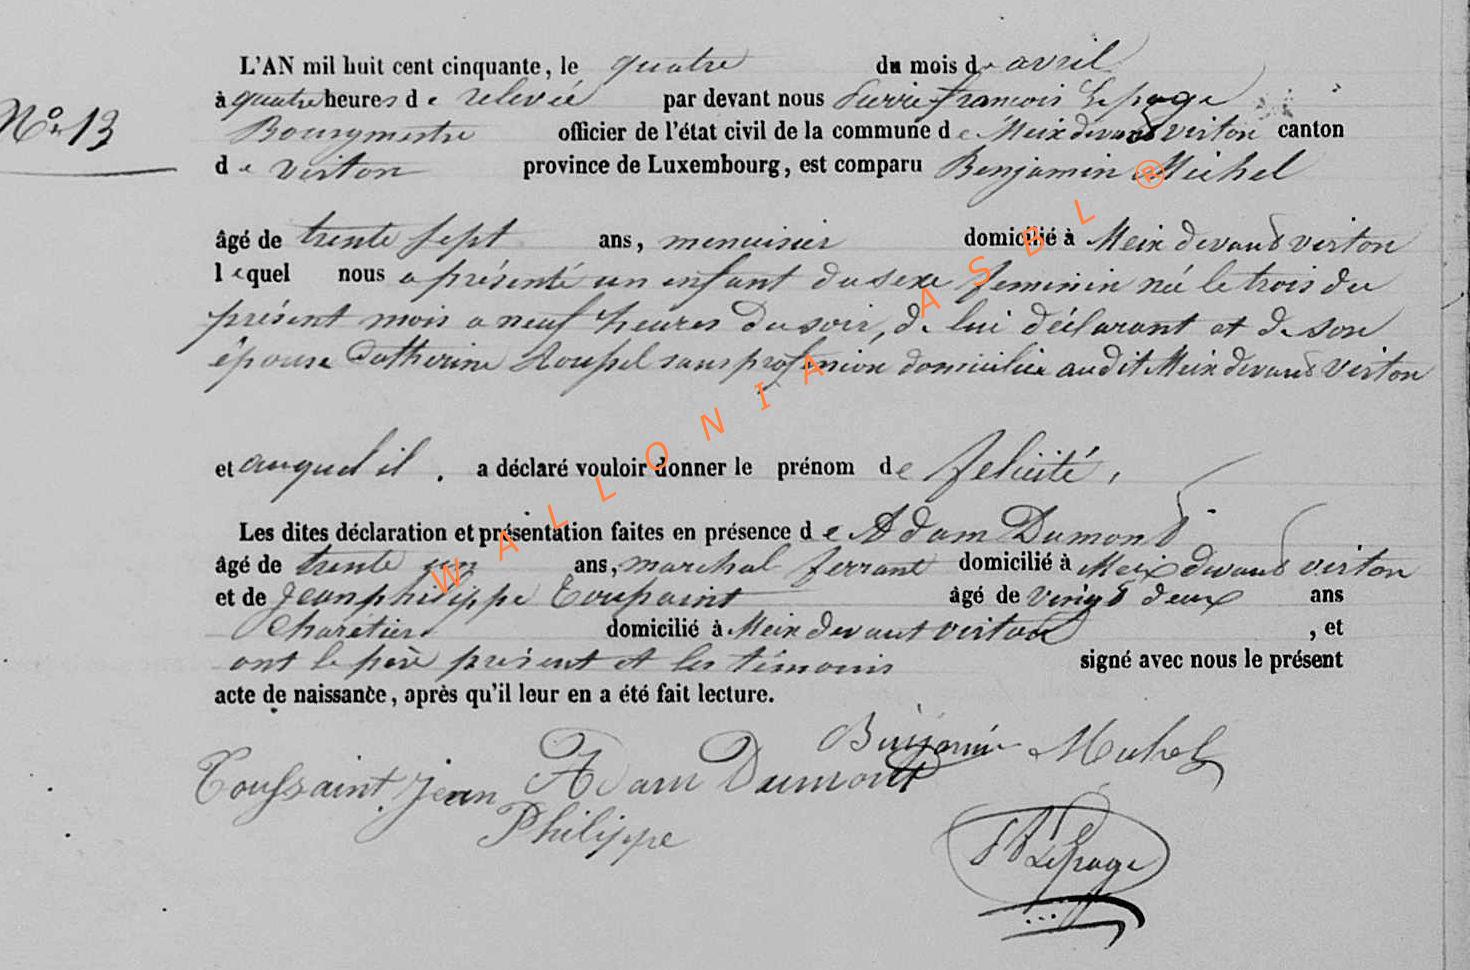 L'AN mil huit cent cinquante, le quatre du mois de avril
à quatre heures de relevée par devant nous Pierre françois Lepage
N° 13
Bourgmestre officier de l'état civil de la commune de Meix devant virton canton
de virton province de Luxembourg, est comparu Benjamin Michel
âgé de trente sept ans, menuisier domicilié à Meix devant virton
lequel nous a présenté un enfant du sexe feminin né le trois du
présent mois a neuf heures du soir, de lui déclarant et de son
épouse Catherine sans profession domiciliée audit Meix devant Virton
et auquel il a déclaré vouloir donner le prénom de felicité,
Les dites déclaration et présentation faites en présence de Adam Dumont
âgé de trente un ans, marchal ferrant domicilié à Meix devant virton
et de Jean philippe Toussaint âgé de vingt deux ans
Charetier domicilié à Meix devant virton , et
ont le père présent et les témoins signé avec nous le présent
acte de naissance, après qu'il leur en a été fait lecture.
Benjamin Michel
Toussaint Jean Adam Dumont
Philippe
Lepage
WALLONIA ASBL ®